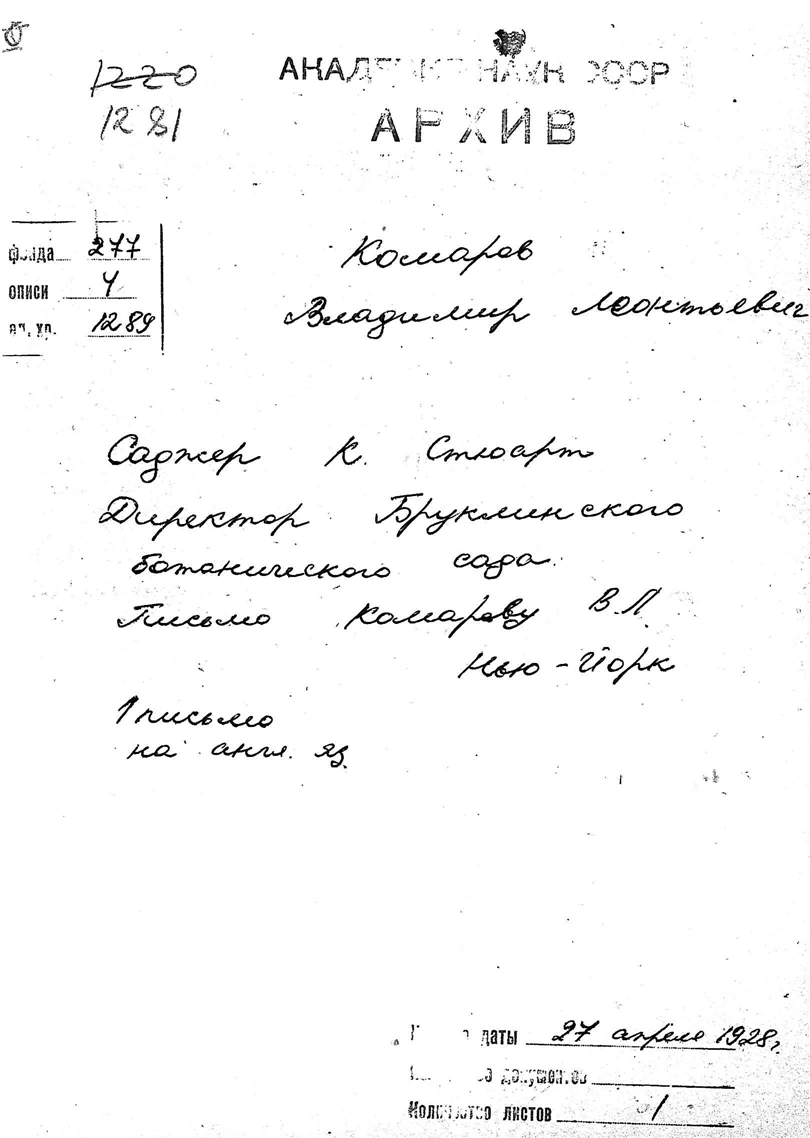 1220
1281
АКАДЕМИЯ НАУК СССР
АРХИВ
фонда 277
описи 4
ед. хр. 1289
Комаров
Владимир Леонтьевич
Саджер К. Стюарт
Директор Бруклинского
ботанического сада.
Письмо Комарову В Л
Нью-Йорк
1 письмо
на англ. яз.
даты 27 апреля 1928 г.
документов
Количество листов 1